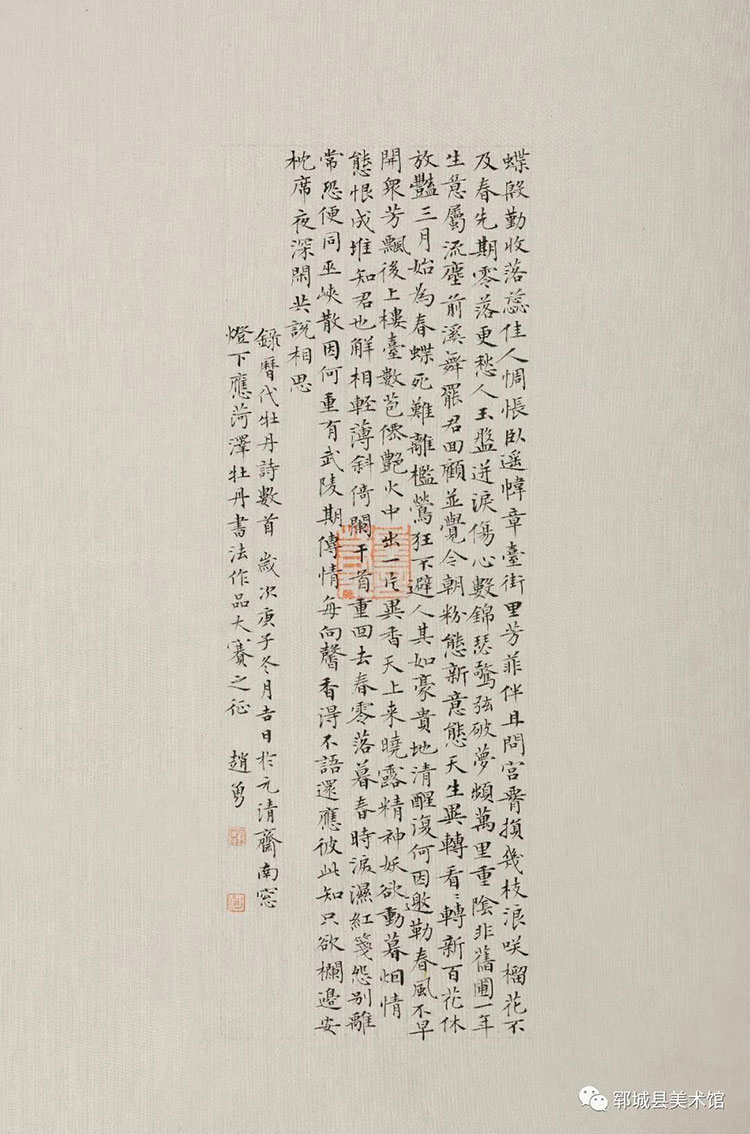 蝶殿勤收落蕊佳人惆悵臥遥幃章臺街里芳菲伴且問宫腰損幾枝浪咲榴花不
及春先期零落更愁人玉盤迸淚傷心數錦瑟驚弦破夢頻萬里重陰非舊圃一年
生意屬流塵前溪舞罷君回顧並覺今朝粉態新意態天生異轉看〻轉新百花休
放豔三月始為春蝶死難離檻鶯狂不避人其如豪貴地清醒復何因邀勒春風不早
開衆芳飄後上樓臺數苞僊艷火中出一片異香天上来曉露精神妖欲動暮烟情
態恨成堆知君也解相軽薄斜倚闌干首重回去春零落暮春時淚濕紅箋怨别離
常恐便同巫峽散因何重有武陵期傳情每向馨香得不語還應彼此知只欲欄邊安
枕席夜深閑共說相思
錄曆代牡丹詩數首 歲次庚子冬月吉日於元清齋南窓
燈下應菏澤牡丹書法作品大賽之征 趙勇
郓城县美术馆